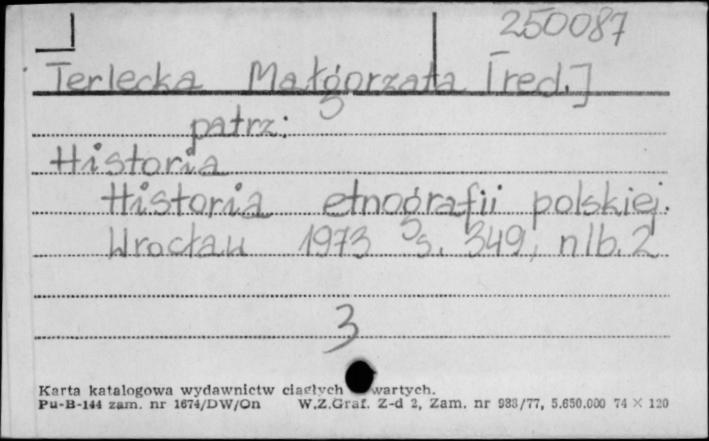 250087
Terlecka Małgorzata [red.]
patrz:
Historia
Historia etnografii polskiej.
Wrocław 1973 s. 349, nlb. 2
3
Karta katalogowa wydawnictw ciągłych wartych.
Pu-B-144 zam. nr 1674/DW/On W.Z.Graf. Z-d 2, Zam. nr 983/77, 5.650.000 74 × 120